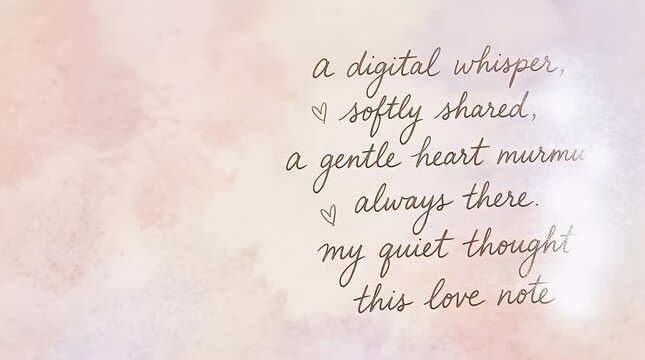 a digital whisper,
softly shared,
a gentle heart murmu
always there.
my quiet thought
this love note